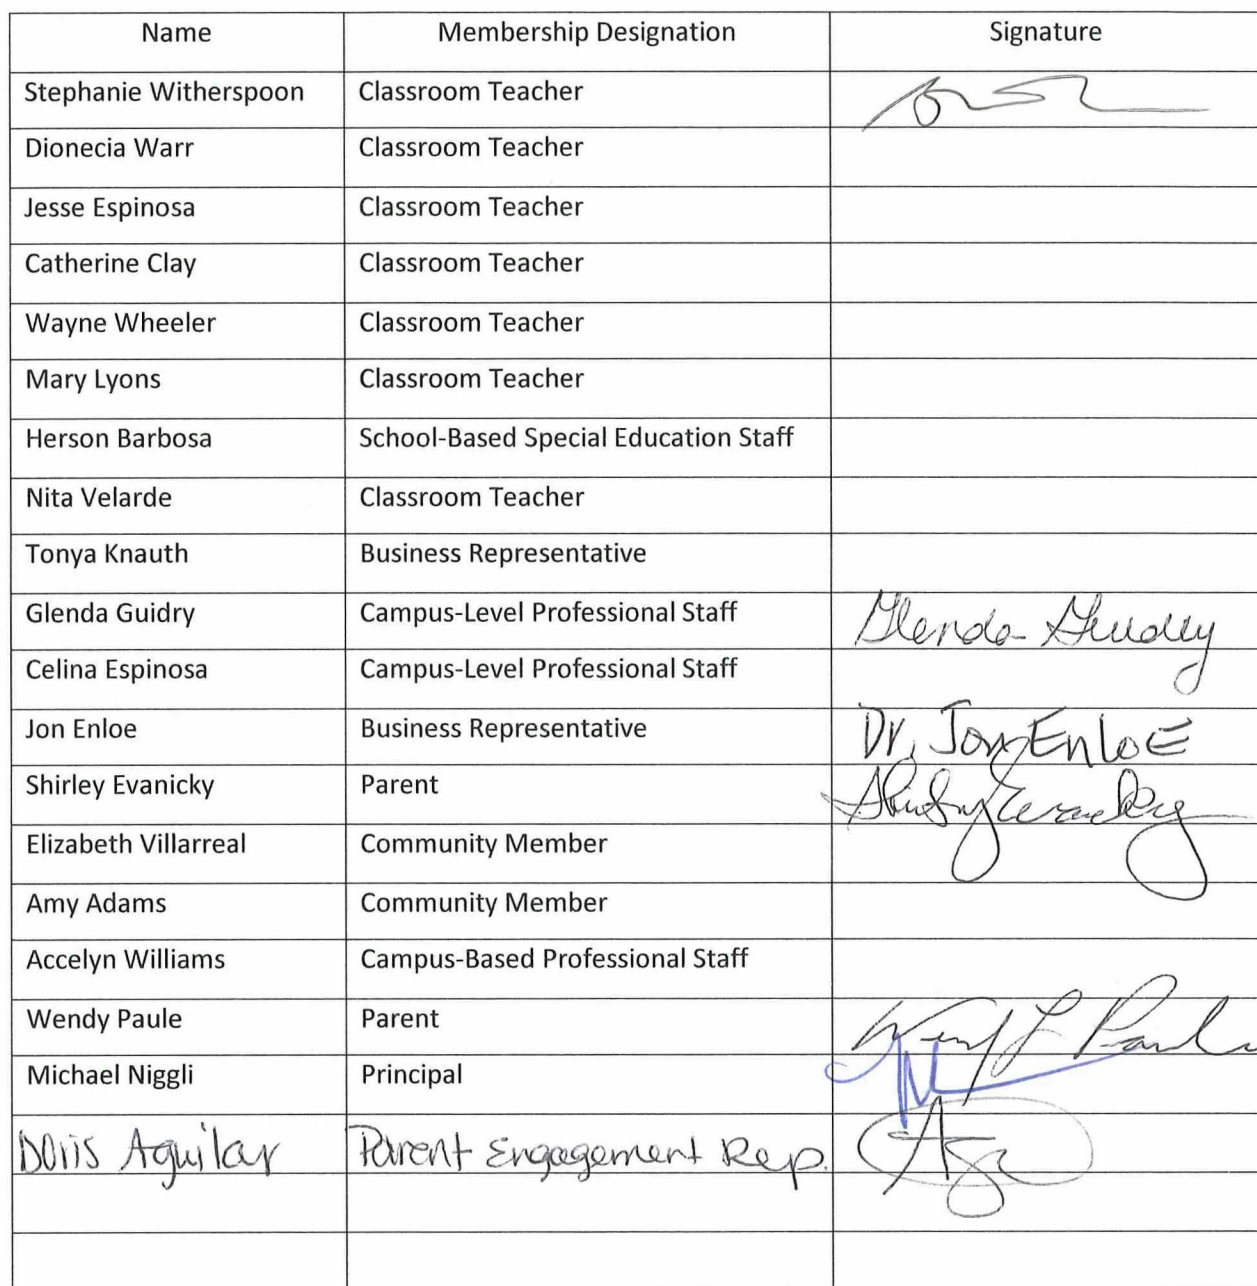 Name Membership Designation Signature
Stephanie Witherspoon Classroom Teacher
Dionecia Warr Classroom Teacher
Jesse Espinosa Classroom Teacher
Catherine Clay Classroom Teacher
Wayne Wheeler Classroom Teacher
Mary Lyons Classroom Teacher
Herson Barbosa School-Based Special Education Staff
Nita Velarde Classroom Teacher
Tonya Knauth Business Representative
Glenda Guidry Campus-Level Professional Staff Glenda Guidry
Celina Espinosa Campus-Level Professional Staff
Jon Enloe Business Representative Dr. Jon Enloe
Shirley Evanicky Parent Shirley Evanicky
Elizabeth Villarreal Community Member
Amy Adams Community Member
Accelyn Williams Campus-Based Professional Staff
Wendy Paule Parent Wendy L Paule
Michael Niggli Principal
Doris Aguilar Parent Engagement Rep.